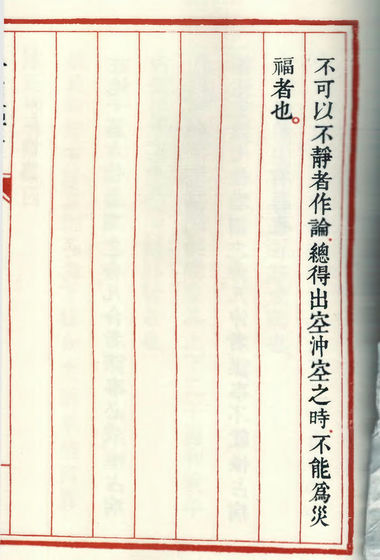 不可以不靜者作論.總得出空沖空之時.不能為災
福者也。